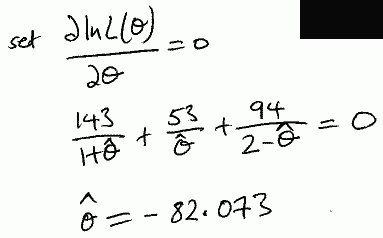 set ∂lnL(θ)/∂θ = 0
143/(1+θ̂) + 53/θ̂ + 94/(2-θ̂) = 0
θ̂ = - 82.073